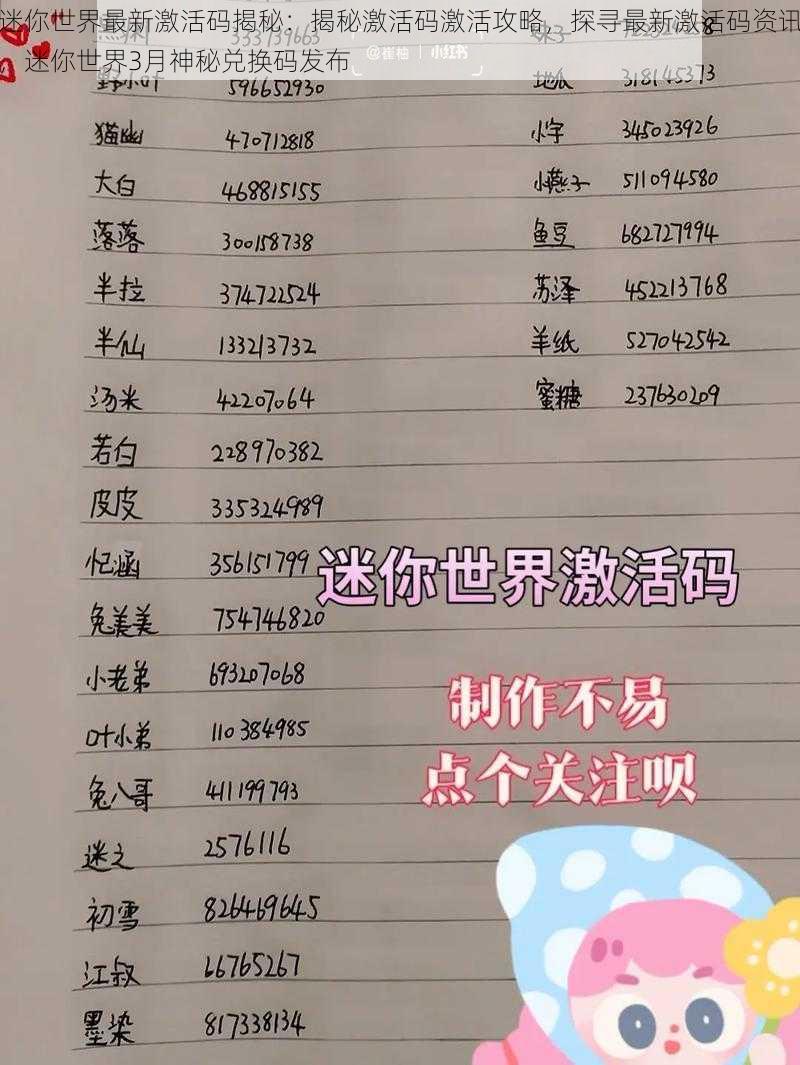 迷你世界最新激活码揭秘：揭秘激活码激活攻略，探寻最新激活码资讯
，迷你世界3月神秘兑换码发布
@崔柚 | 小红书
野小叶 596652930
猫幽 470712818
大白 468815155
落落 300158738
半拉 374722524
半仙 133213732
汤米 42207064
若白 228970382
皮皮 335324989
忆涵 356151799
兔美美 754746820
小老弟 693207068
叶小弟 110384985
兔八哥 411199793
迷之 2576116
初雪 826469645
江叔 66765267
墨染 817338134
地瓜 318145373
小字 345023926
小燕子 511094580
鱼豆 682727994
苏泽 452213768
羊纸 527042542
蜜糖 237630209
迷你世界激活码
制作不易
点个关注呗